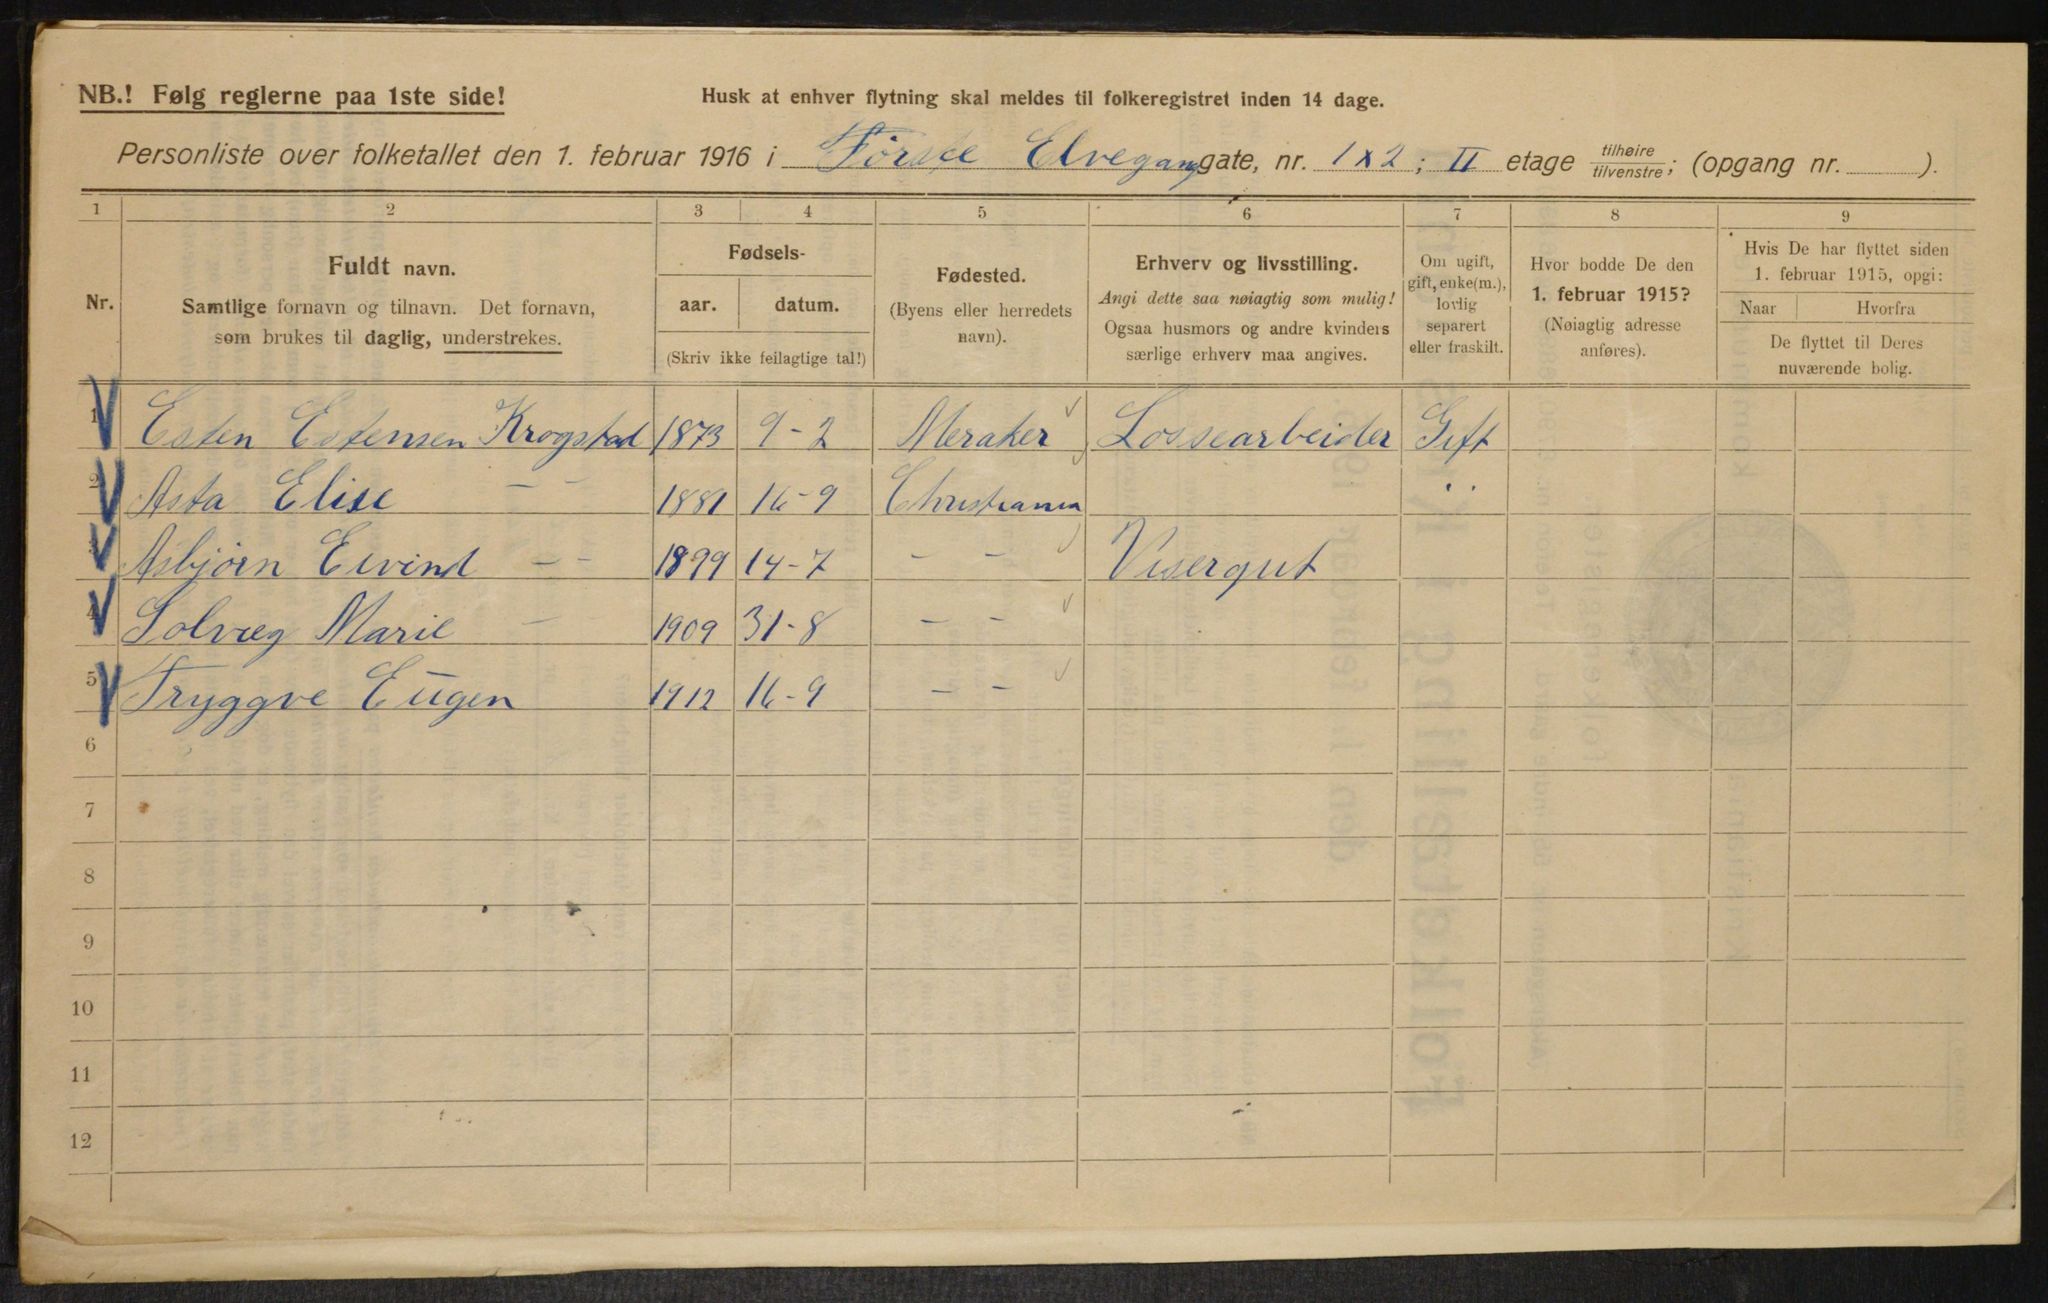 NB.! Følg reglerne paa 1ste side!
Husk at enhver flytning skal meldes til folkeregistret inden 14 dage.
Personliste over folketallet den 1. februar 1916 i Elvegang gate, nr. 1 x 2; II etage tilhøire/tilvenstre; (opgang nr. ).
1 2 3 4 5 6 7 8 9
Nr.
Fuldt navn.
Samtlige fornavn og tilnavn. Det fornavn,
som brukes til daglig, understrekes.
Fødsels-
aar. datum.
(Skriv ikke feilagtige tal!)
Fødested.
(Byens eller herredets
navn).
Erhverv og livsstilling.
Angi dette saa nøiagtig som mulig!
Ogsaa husmors og andre kvinders
særlige erhverv maa angives.
Om ugift,
gift, enke(m.),
lovlig
separert
eller fraskilt.
Hvor bodde De den
1. februar 1915?
(Nøiagtig adresse
anføres).
Hvis De har flyttet siden
1. februar 1915, opgi:
Naar Hvorfra
De flyttet til Deres
nuværende bolig.
1 Esten Estensen Krogstad 1873 9-2 Meraker Lossearbeider Gift
2 Asta Elise — — 1881 16-9 Christiania "
3 Asbjørn Eivind — — 1899 14-7 — — Visergut
4 Solveg Marie — 1909 31-8 — —
5 Tryggve Eugen 1912 16-9 — —
6
7
8
9
10
11
12